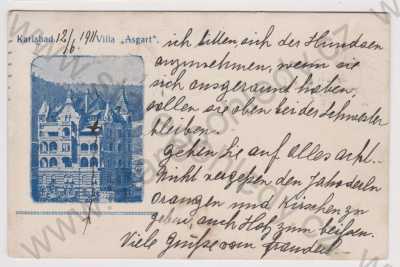 Karlsbad, 12/6 1911 Villa „Asgart“.
ich bitten sich der
anzunehmen, wenn sie
sich ausgeraumt haben,
sollen sie oben bei der Schwester
bleiben.
Gehen Sie auf alles acht.
Nicht vergessen den
orangen und Kirschen zu
geben, auch Hof zum beißen.
Viele Grüße vom